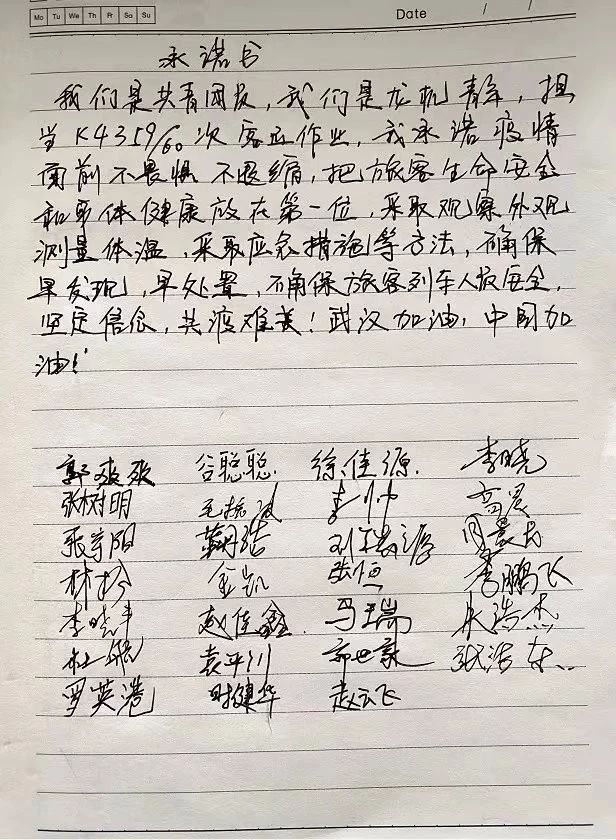 Mo Tu We Th Fr Sa Su
Date / /
承诺书
我们是共青团员,我们是龙机青年,担
当K4359/60次客运作业,我承诺疫情
面前不畏惧不退缩,把旅客生命安全
和身体健康放在第一位,采取观察外观
测量体温,采取应急措施等方法,确保
早发现,早处置,确保旅客列车人员安全,
坚定信念,共渡难关!武汉加油,中国加
油!
郭爽爽 谷聪聪 徐佳源 李晓
张树明 李帅 高
张宇阳 刘
林松 金凯 张恒 李鹏飞
李晓丰 赵佳鑫 马瑞 朱浩杰
杜航 袁平川 郭世豪 张浩东
罗英港 时建华 赵云飞